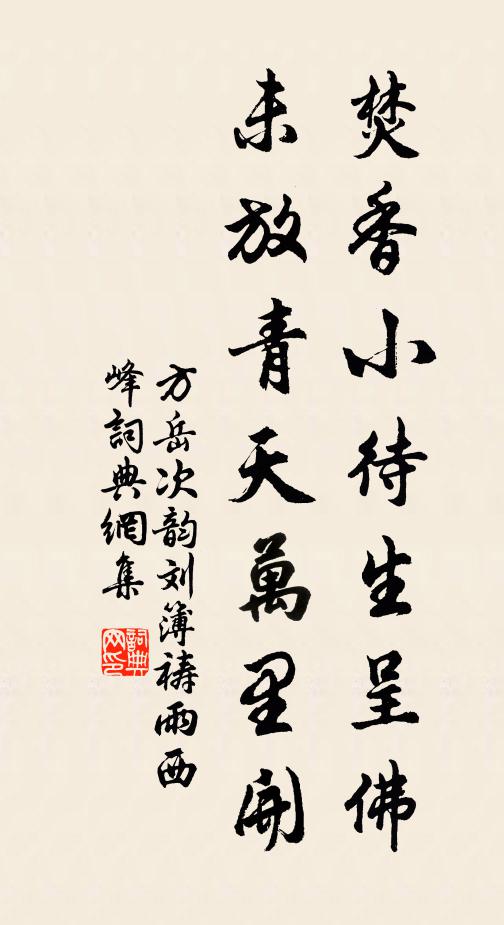 焚香小待生呈佛
未放青天萬里開
方岳次韵刘簿祷雨西
峰詞典網集
詞典
网印